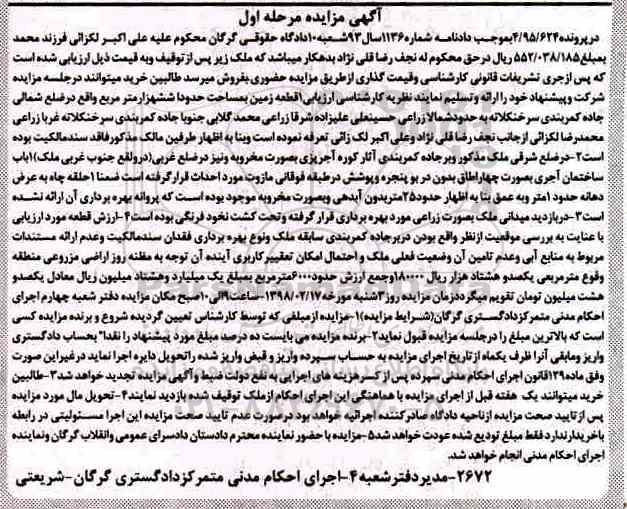 آگهی مزایده مرحله اول
در پرونده۴/۹۵/۶۲۴بموجب دادنامه شماره۱۱۳۶سال۹۳شعبه۱۰دادگاه حقوقی گرگان محکوم علیه علی اکبر لکزائی فرزند محمد
بمبلغ۵۵۲/۰۳۸/۱۸۵ ریال در حق محکوم له نجف رضا قلی نژاد بدهکار میباشد که ملک زیر پس از توقیف وبه قیمت ذیل ارزیابی شده است
که پس از جری تشریفات قانونی کارشناسی وقیمت گذاری از طریق مزایده حضوری بفروش میرسد طالبین خرید میتوانند در جلسه مزایده
شرکت و پیشنهاد خود را ارائه و تسلیم نمایند نظریه کارشناسی ارزیابی۱قطعه زمین بمساحت حدودا ششهزار متر مربع واقع در ضلع شمالی
جاده کمربندی سرخنکلاته به حدود شمالا زراعی حسینعلی علیزاده شرقا زراعی محمد گلابی جنوبا جاده کمربندی سرخنکلاته غربا زراعی
محمدرضا لکزائی از جانب نجف رضا قلی نژاد وعلی اکبر لک زائی تعرفه نموده است وبنا به اظهار طرفین مالک مذکور فاقد سند مالکیت بوده
است۲-در ضلع شرقی ملک مذکور وبر جاده کمربندی آثار کوره آجرپزی بصورت مخروبه ونیز در ضلع غربی(در واقع جنوب غربی ملک)۱باب
ساختمان آجری بصورت چهار اطاق بدون در بو پنجره وپوشش در طبقه فوقانی ماژوت مورد احداث قرار گرفته است ضمنا ۱حلقه چاه به عرض
دهانه حدود ۱متر وبه عمق بنا به اظهار حدود۲۵متر بدون آبدهی وبصورت مخروبه موجود بوده است که پروانه بهره برداری آن ارائه نشده
است۳-در بازدید میدانی ملک بصورت زراعی مورد بهره برداری قرار گرفته وتحت کشت نخود فرنگی بوده است۴-ارزش قطعه مورد ارزیابی
با عنایت به بررسی موقعیت از نظر واقع بودن در بر جاده کمربندی سابقه ملک ونوع بهره برداری فقدان سند مالکیت وعدم ارائه مستندات
مربوط به منابع آبی وعدم تامین آن وضعیت فعلی ملک و احتمال امکان تغییر کاربری آینده آن توجه به مظنه روز اراضی مزروعی منطقه
وقوع متر مربعی یکصدو هشتاد هزار ریال ۱۸۰۰۰۰ وجمع ارزش حدود۶۰۰۰متر مربع بمبلغ یک میلیارد وهشتاد میلیون ریال معادل یکصدو
هشت میلیون تومان تقویم میگردد زمان مزایده روز ۳شنبه مورخه ۱۳۹۸/۰۲/۱۷-ساعت۹الی۱۰صبح مکان مزایده دفتر شعبه چهارم اجرای
احکام مدنی متمرکز دادگستری گرگان(شرایط مزایده)۱-مزایده از مبلغی که توسط کارشناس تعیین گردیده شروع و برنده مزایده کسی
است که بالاترین مبلغ را در جلسه مزایده قبول نماید۲-برنده مزایده می بایست ده درصد مبلغ مورد پیشنهاد را نقدا" بحساب دادگستری
واریز ومابقی آنرا ظرف یکماه از تاریخ اجرای مزایده به حساب سپرده واریز و قبض واریز شده راتحویل دایره اجرا نماید در غیر این صورت
وفق ماده۱۲۹قانون اجرای احکام مدنی سپرده پس از کسر هزینه های اجرایی به نفع دولت ضبط وآگهی مزایده تجدید خواهد شد۳-طالبین
خرید میتوانند یک هفته قبل از اجرای مزایده با هماهنگی این اجرای احکام از ملک توقیف شده بازدید نمایند۴-تحویل مال مورد مزایده
پس از تایید صحت مزایده از ناحیه دادگاه صادر کننده اجرائیه خواهد بود در صورت عدم تایید صحت مزایده این اجرا مسئولیتی در رابطه
با خریدار ندارد فقط مبلغ تودیع شده عودت خواهد شد۵-مزایده با حضور نماینده محترم دادستان دادسرای عمومی وانقلاب گرگان ونماینده
اجرای احکام مدنی انجام خواهد شد.
۲۶۷۲-مدیر دفتر شعبه ۴-اجرای احکام مدنی متمرکز دادگستری گرگان-شریعتی